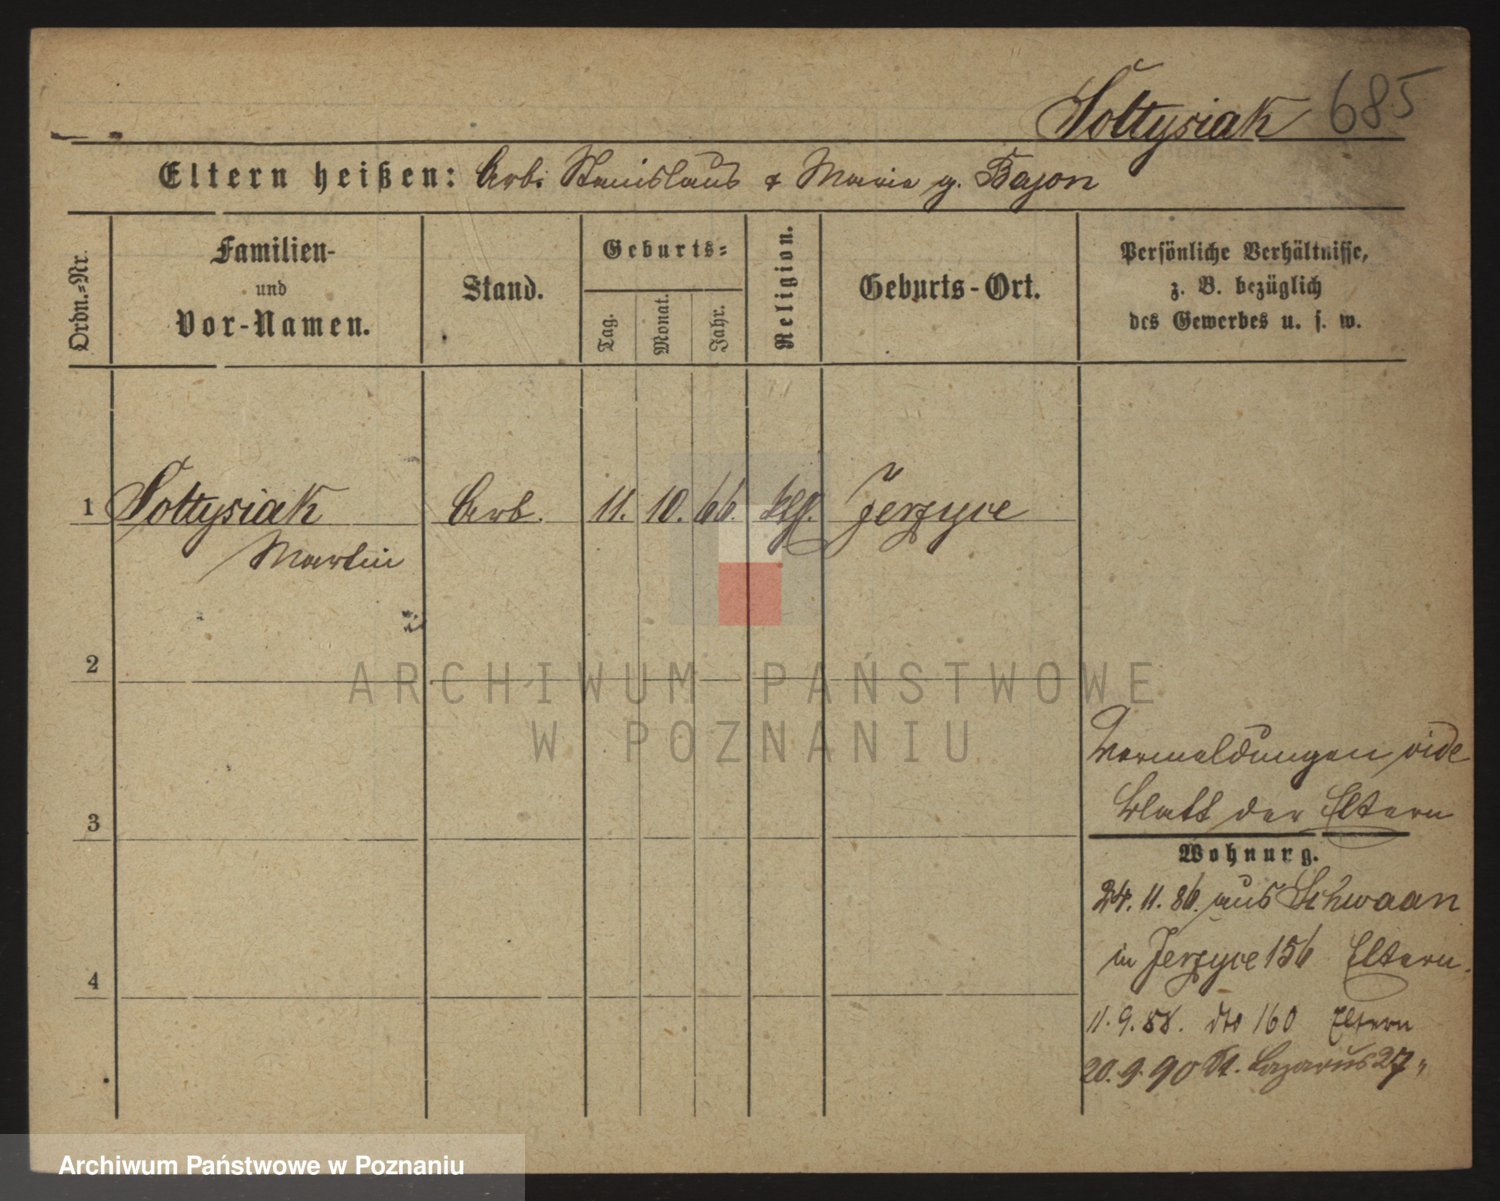 Sołtysiak 685
Eltern heißen: Arb. Stanislaus & Marie g. Bajon
Ordn.-Nr.
Familien-
und
Vor-Namen.
Stand.
Geburts-
Tag.
Monat.
Jahr.
Religion.
Geburts-Ort.
Persönliche Verhältnisse,
z. B. bezüglich
des Gewerbes u. s. w.
1 Sołtysiak Arb. 11. 10. 66. kth. Jerzyce
Martin
2
3
4
Vermeldungen vide
Blatt der Eltern
Wohnung.
24. 11. 86. aus Schwaan
in Jerzyce 156 Eltern.
11. 9. 88. dto 160 Eltern
20. 9. 90 St. Lazarus 27 "
ARCHIWUM PAŃSTWOWE
W POZNANIU
Archiwum Państwowe w Poznaniu